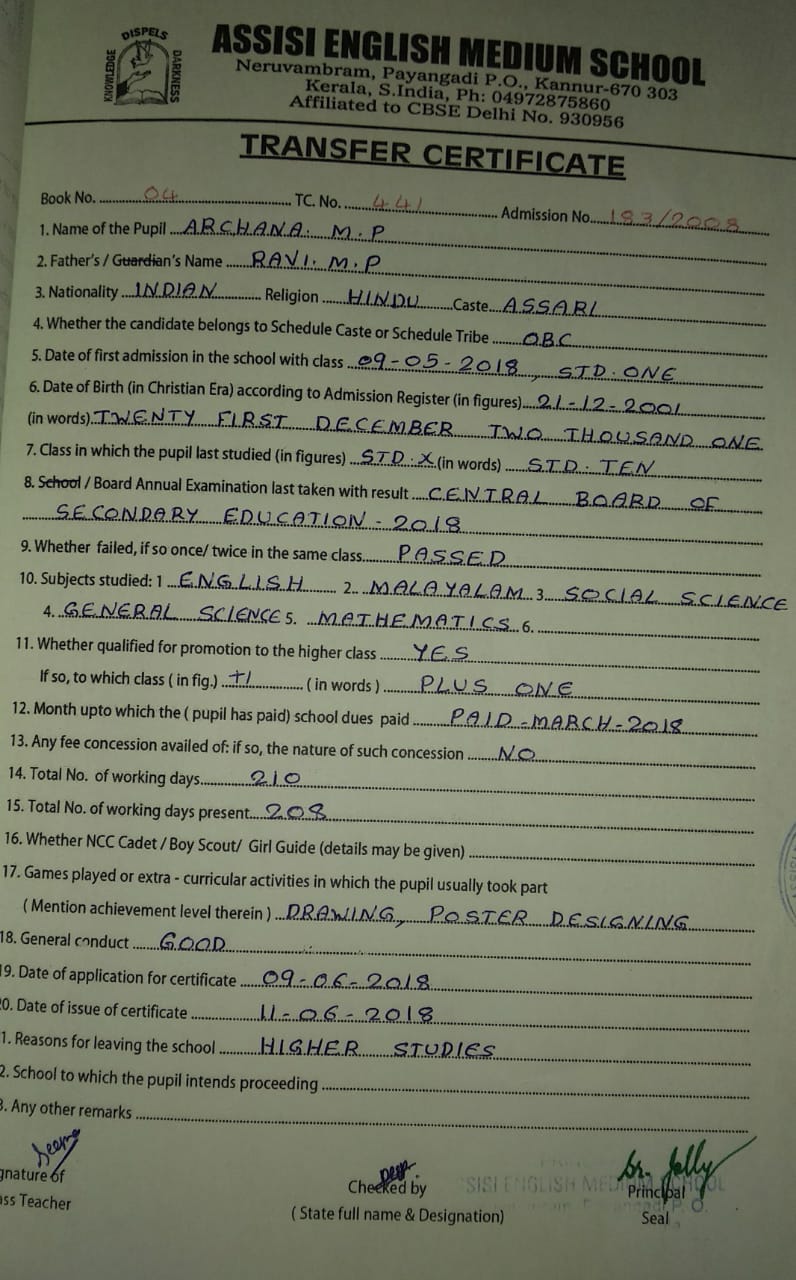 DISPELS
KNOWLEDGE
DARKNESS
ASSISI ENGLISH MEDIUM SCHOOL
Neruvambram, Payangadi P.O., Kannur-670 303
Kerala, S.India, Ph: 04972875860
Affiliated to CBSE Delhi No. 930956
TRANSFER CERTIFICATE
Book No. 04 TC. No. 441 Admission No. 183/2008
1. Name of the Pupil ARCHANA. M.P
2. Father's / Guardian's Name RAVI. M.P
3. Nationality INDIAN Religion HINDU Caste ASSARI
4. Whether the candidate belongs to Schedule Caste or Schedule Tribe OBC
5. Date of first admission in the school with class 09-05-2018, STD. ONE
6. Date of Birth (in Christian Era) according to Admission Register (in figures) 21-12-2001
(in words) TWENTY FIRST DECEMBER TWO THOUSAND ONE
7. Class in which the pupil last studied (in figures) STD. X (in words) STD. TEN
8. School / Board Annual Examination last taken with result CENTRAL BOARD OF
SECONDARY EDUCATION - 2018
9. Whether failed, if so once/ twice in the same class PASSED
10. Subjects studied: 1 ENGLISH 2. MALAYALAM 3. SOCIAL SCIENCE
4. GENERAL SCIENCE 5. MATHEMATICS 6.
11. Whether qualified for promotion to the higher class YES
If so, to which class ( in fig.) +1 ( in words ) PLUS ONE
12. Month upto which the ( pupil has paid) school dues paid PAID-MARCH-2018
13. Any fee concession availed of: if so, the nature of such concession NO
14. Total No. of working days 210
15. Total No. of working days present 208
16. Whether NCC Cadet / Boy Scout/ Girl Guide (details may be given)
17. Games played or extra - curricular activities in which the pupil usually took part
( Mention achievement level therein ) DRAWING, POSTER DESIGNING
18. General conduct GOOD
19. Date of application for certificate 09-06-2018
20. Date of issue of certificate 11-06-2018
1. Reasons for leaving the school HIGHER STUDIES
2. School to which the pupil intends proceeding
3. Any other remarks
Sr. Jolly
gnature of Checked by SISI ENGLISH MEDIUM SCHOOL Principal
ass Teacher ( State full name & Designation) Seal